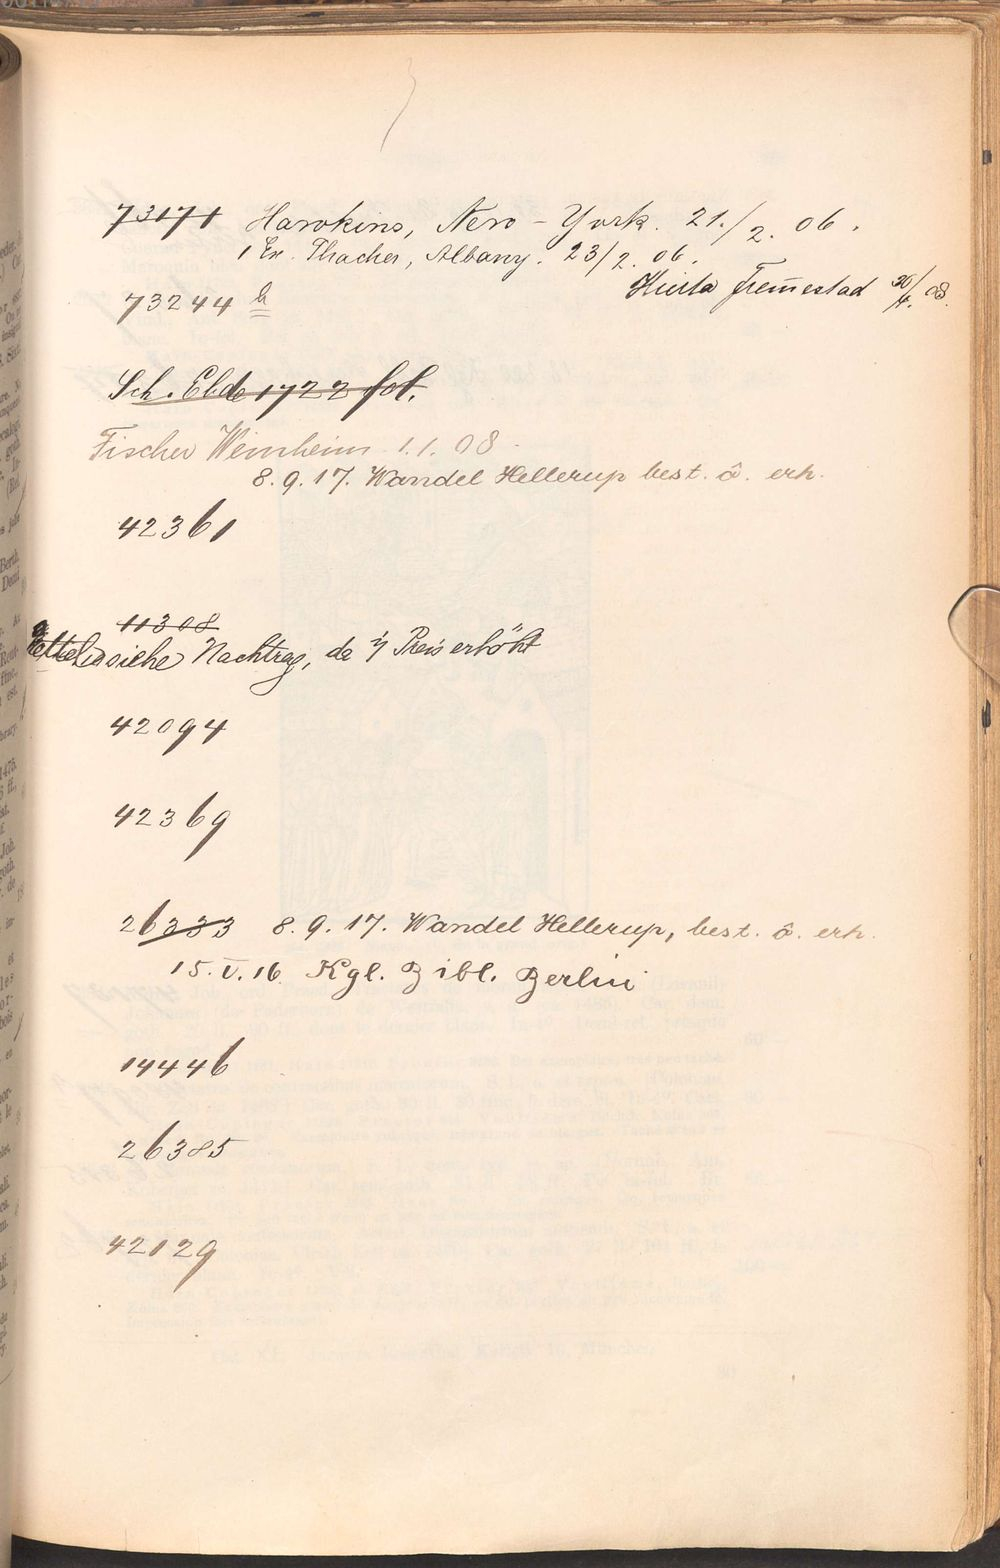 73171 Hawkins, New-York. 21./2. 06.
1 Ex. Thacher, Albany. 23/2. 06.
73244 b Hierta Fremestad 30/4. 08.
Sch. Elde 1722 fol.
Fischer Weinheim 1.1.08
8.9.17. Wandel Hellerup best. â. erh.
42361
11308
siehe Nachtrag, da Preis erhöht
42094
42369
26333 8.9.17. Wandel Hellerup, best. â. erh.
15.V.16 Kgl. Bibl. Berlin
14446
26385
42129